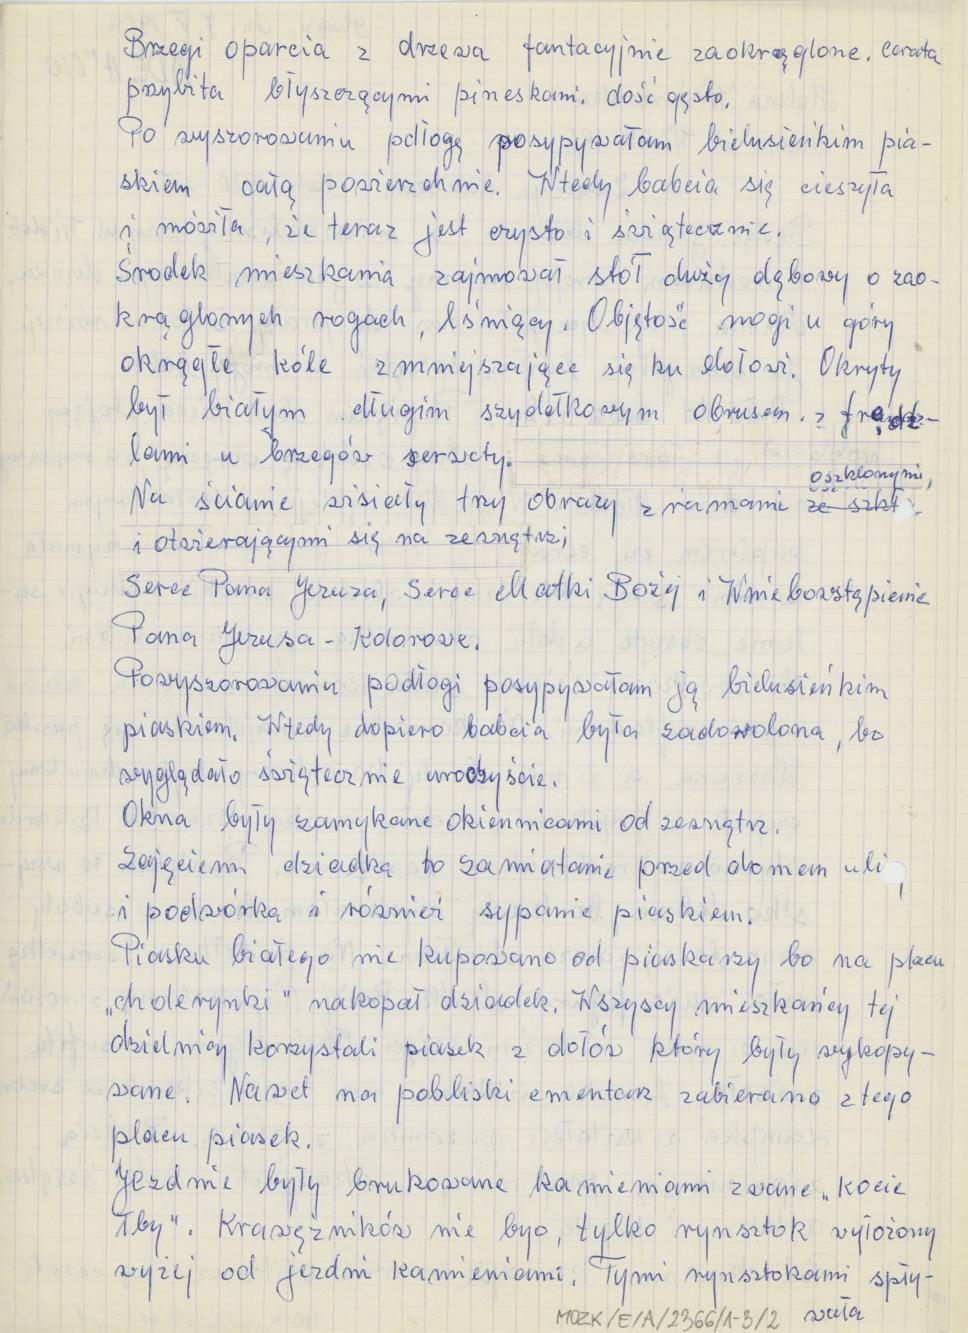 Brzegi oparcia z drzewa fantacyjnie zaokrąglone. Cerata
przybita błyszczącymi pineskami. dość gęsto.
Po wyszorowaniu pdłogę posypywałam bielusieńkim pia-
skiem całą powierzchnie. Wtedy babcia się cieszyła
i mówiła, że teraz jest czysto i świątecznie.
Środek mieszkania zajmował stół duży dębowy o zao-
krąglonych rogach, lśniący. Objętość nogi u góry
okrągłe kóle zmniejszające się ku dołowi. Okryty
był białym długim szydełkowym obrusem. z frędz-
lami u brzegów serwety.
oszklonymi,
Na ścianie wisiały trzy obrazy z ramami ze szkł
i otwierającymi się na zewnątrz;
Serce Pana Jezuza, Serce Matki Bożej i Wniebowstąpienie
Pana Jezusa - Kolorowe.
Powyszorowaniu podłogi posypywałam ją bielusieńkim
piaskiem. Wtedy dopiero babcia była zadowolona, bo
wyglądało świątecznie uroczyście.
Okna były zamykane okiennicami od zewnątrz.
Zajęciem dziadka to zamiatanie przed domem uli,
i podwórka i również sypanie piaskiem.
Piasku białego nie kupowano od piaskarzy bo na placu
„cholerynki" nakopał dziadek. Wszyscy mieszkańcy tej
dzielnicy korzystali piasek z dołów który były wykopy-
wane. Nawet na pobliski cmentarz zabierano z tego
placu piasek.
Jezdnie były brukowane kamieniami zwane „kocie
łby". Krawężników nie byo, tylko rynsztok wyłożony
wyżej od jezdni kamieniami. Tymi rynsztokami spły-
wała
MOZK/E/A/2366/1-3/2